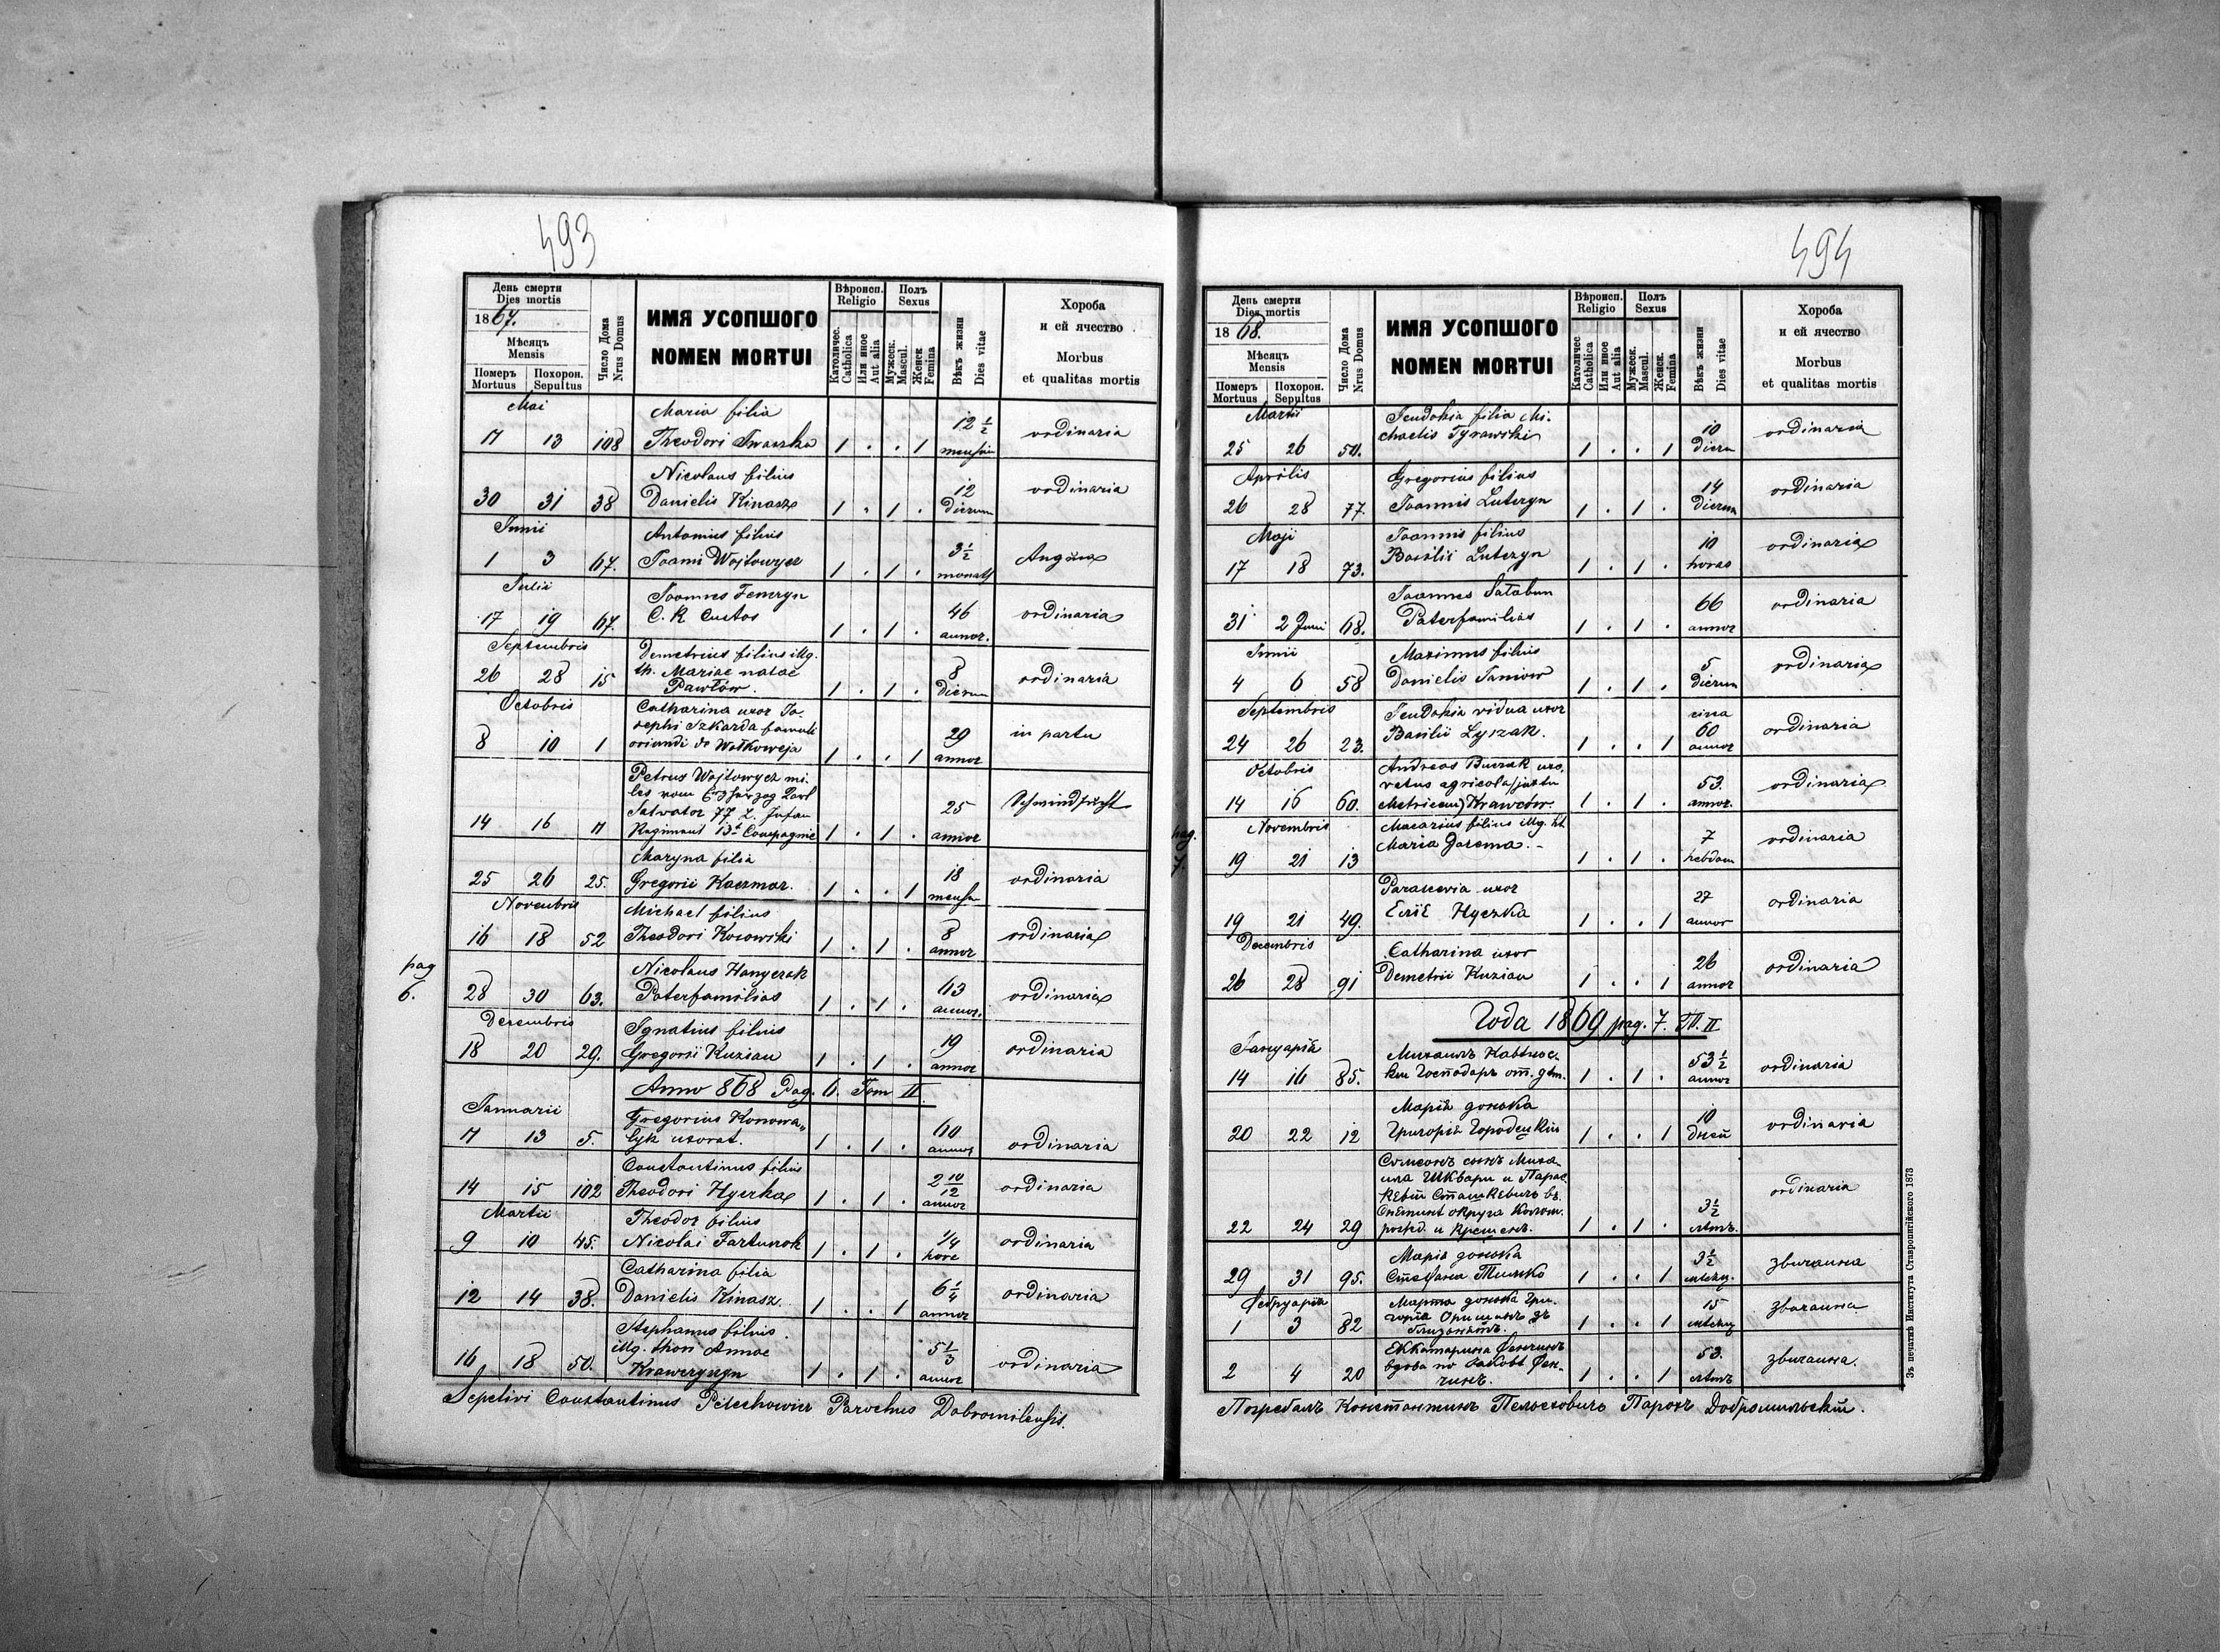 493
День смерти
Dies mortis
1867.
Мѣсяцъ
Mensis
Померъ Похорон.
Mortuus Sepultus
Число Дома
Nrus Domus
ИМЯ УСОПШОГО
NOMEN MORTUI
Вѣроисп.
Religio
Католичес.
Catholica
Или иное
Aut alia
Полъ
Sexus
Мужеск.
Mascul.
Женск
Femina
Вѣкъ жизни
Dies vitae
Хороба
и ей ячество
Morbus
et qualitas mortis
Mai
Maria filia
11 13 108 Theodori Iwaszko 1 . . 1 12 1/2 ordinaria
Nicolaus filius
30 31 38 Danielis Kinasz 1 . 1 . 12 Dierum ordinaria
Junii
Antonius filius
1 3 67. Joanni Wojtowycz 1 . 1 . 3 1/2 Angina
Julii
Joannes Fenczyn
17 19 67. C. R. Custos 1 . 1 . 46 annor. ordinaria
Septembris
Demetrius filius illg.
26 28 15 th. Mariae natae
Pawłów. 1 . 1 . 8 Dierum ordinaria
Octobris
Catharina uxor Jo-
sephi Szkarda famuli
8 10 1 oriundi de Wołkowyja 1 . . 1 29 annor in partu
Petrus Wojtowycz mi-
les vom Erzherzog Karl
Salvator 77 L. Infan
14 16 11 Regiment 13t Compagnie 1 . 1 . 25 annor Schwindsucht
Maryna filia
25 26 25. Gregorii Kaczmar. 1 . . 1 18 ordinaria
Novembris
Michael filius
16 18 52 Theodori Kosowski 1 . 1 . 8 annor ordinaria
pag
6.
Nicolaus Hanyczak
28 30 63. Paterfamilias 1 . 1 . 63 annor. ordinaria
Decembris
Ignatius filius
18 20 29. Gregorii Kuziau 1 . 1 . 19 annor ordinaria
Anno 868 Pag. 6. Tom II.
Januarii
Gregorius Konowa-
11 13 5. lyk uxorat. 1 . 1 . 60 annor ordinaria
Constantinus filius
14 15 102 Theodori Hyczka 1 . 1 . 2 10/12 annor ordinaria
Martii
Theodor filius
9 10 45. Nicolai Fartuszok 1 . 1 . 1/4 hore ordinaria
Catharina filia
12 14 38. Danielis Kinasz. 1 . . 1 6 1/4 annor ordinaria
Stephanus filius
illg. thori Annae
16 18 50. Krawczyszyn 1 . 1 . 5 1/3 annor ordinaria
Sepelivi Constantinus Pelechowicz Parochus Dobromilensis.
494
День смерти
Dies mortis
1868.
Мѣсяцъ
Mensis
Померъ Похорон.
Mortuus Sepultus
Число Дома
Nrus Domus
ИМЯ УСОПШОГО
NOMEN MORTUI
Вѣроисп.
Religio
Католичес
Catholica
Или иное
Aut alia
Полъ
Sexus
Мужеск.
Mascul.
Женск.
Femina
Вѣкъ жизни
Dies vitae
Хороба
и ей ячество
Morbus
et qualitas mortis
Martii
Jeudokia filia Mi-
25 26 50. chaelis Tyrawski 1 . . 1 10 Dieru ordinaria
Aprilis
Gregorius filius
26 28 77. Joannis Lutczyn 1 . 1 . 14 Dierum ordinaria
Maji
Joannis filius
17 18 73. Basilii Lutczyn 1 . 1 . 10 horas ordinaria
Joannes Sałabun
31 2 Juni 68. Paterfamilias 1 . 1 . 66 annor ordinaria
Junii
Maximus filius
4 6 58 Danielis Janiow 1 . 1 . 5 Dierum ordinaria
Septembris
Jeudokia vidua uxor
24 26 23. Basilii Lyszak. 1 . . 1 circa 60 annor ordinaria
Octobris
Andreas Burak uxo-
ratus agricola (juxta
14 16 60. Metricam) Krawców. 1 . 1 . 53. annor. ordinaria
pag.
7.
Novembris
Macarius filius illg. th
19 21 13 Maria Jarema.- 1 . 1 . 7 hebdom ordinaria
Parascevia uxor
19 21 49. Eliæ Hyczka 1 . . 1 27 annor ordinaria
Decembris
Catharina uxor
26 28 91 Demetrii Kuziau 1 . . 1 26 annor ordinaria
Года 1869 pag. 7. Т. II
Януарій
14 16 85. Господаръ 1 . 1 . 53 1/2 annor ordinaria
Марія донька
20 22 12 Григорія Городецкій 1 . . 1 10 дней ordinaria
Симеонъ сынъ Миха-
ила Шквари и Парас-
22 24 29 1 . 1 . 3 1/2 лѣтъ. ordinaria
Марія донька
29 31 95. Стефана Тимко 1 . . 1 3 1/2 звичайна
Фебруарія
Марта донька Гри-
1 3 82 1 . . 1 15 звичайна
Екатарина Фенчинъ
вдова по Якобѣ Фен-
2 4 20 чинъ. 1 . . 1 53. лѣтъ звичайна.
Погребалъ Константинъ Пелеховичъ Парохъ Добромильскій.
Зъ печатнѣ Института Ставропигійского 1873